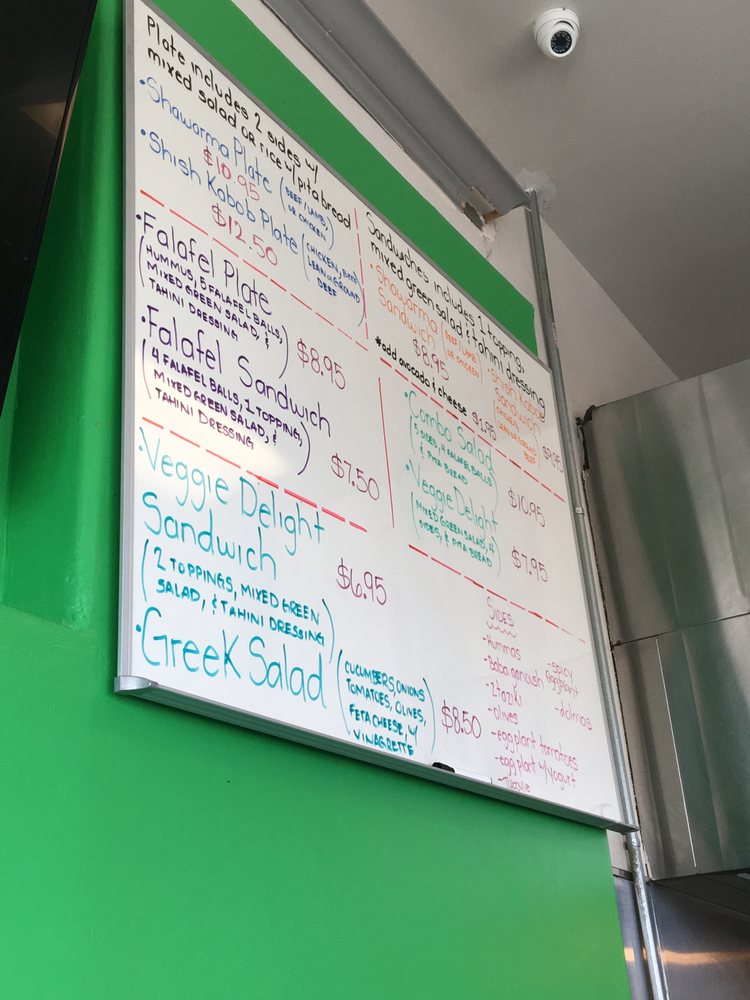 Plate includes 2 sides w/
mixed salad OR rice w/ pita bread
•Shawarma Plate (BEEF, LAMB,
OR CHICKEN)
$10.95
•Shish Kabob Plate (CHICKEN, BEEF
LEAN OR GROUND
BEEF)
$12.50
•Falafel Plate
(HUMMUS, 5 FALAFEL BALLS,
MIXED GREEN SALAD, &
TAHINI DRESSING)
$8.95
•Falafel Sandwich
(4 FALAFEL BALLS, 1 TOPPING,
MIXED GREEN SALAD, &
TAHINI DRESSING)
$7.50
•Veggie Delight
Sandwich
(2 TOPPINGS, MIXED GREEN
SALAD, & TAHINI DRESSING)
$6.95
•Greek Salad
(CUCUMBERS, ONIONS
TOMATOES, OLIVES,
FETA CHEESE, w/
VINAGRETTE)
$8.50
Sandwiches includes 1 topping,
mixed green salad & tahini dressing
•Shawarma
Sandwich
(BEEF, LAMB,
OR CHICKEN)
$8.95
Shish Kabob
Sandwich
(CHICKEN,
LEAN OR GROUND
BEEF)
$9.95
*add avocado & cheese $1.95
•Combo Salad
(5 SIDES, 4 FALAFEL BALLS
& PITA BREAD)
$10.95
•Veggie Delight
(MIXED GREEN SALAD, 4
SIDES, & PITA BREAD)
$7.95
SIDES
-Hummas
-Baba ganoush
-Ztaziki
-olives
-egg plant tomatoes
-egg plant w/ yogurt
-Taboule
-spicy
eggplant
-dolmas